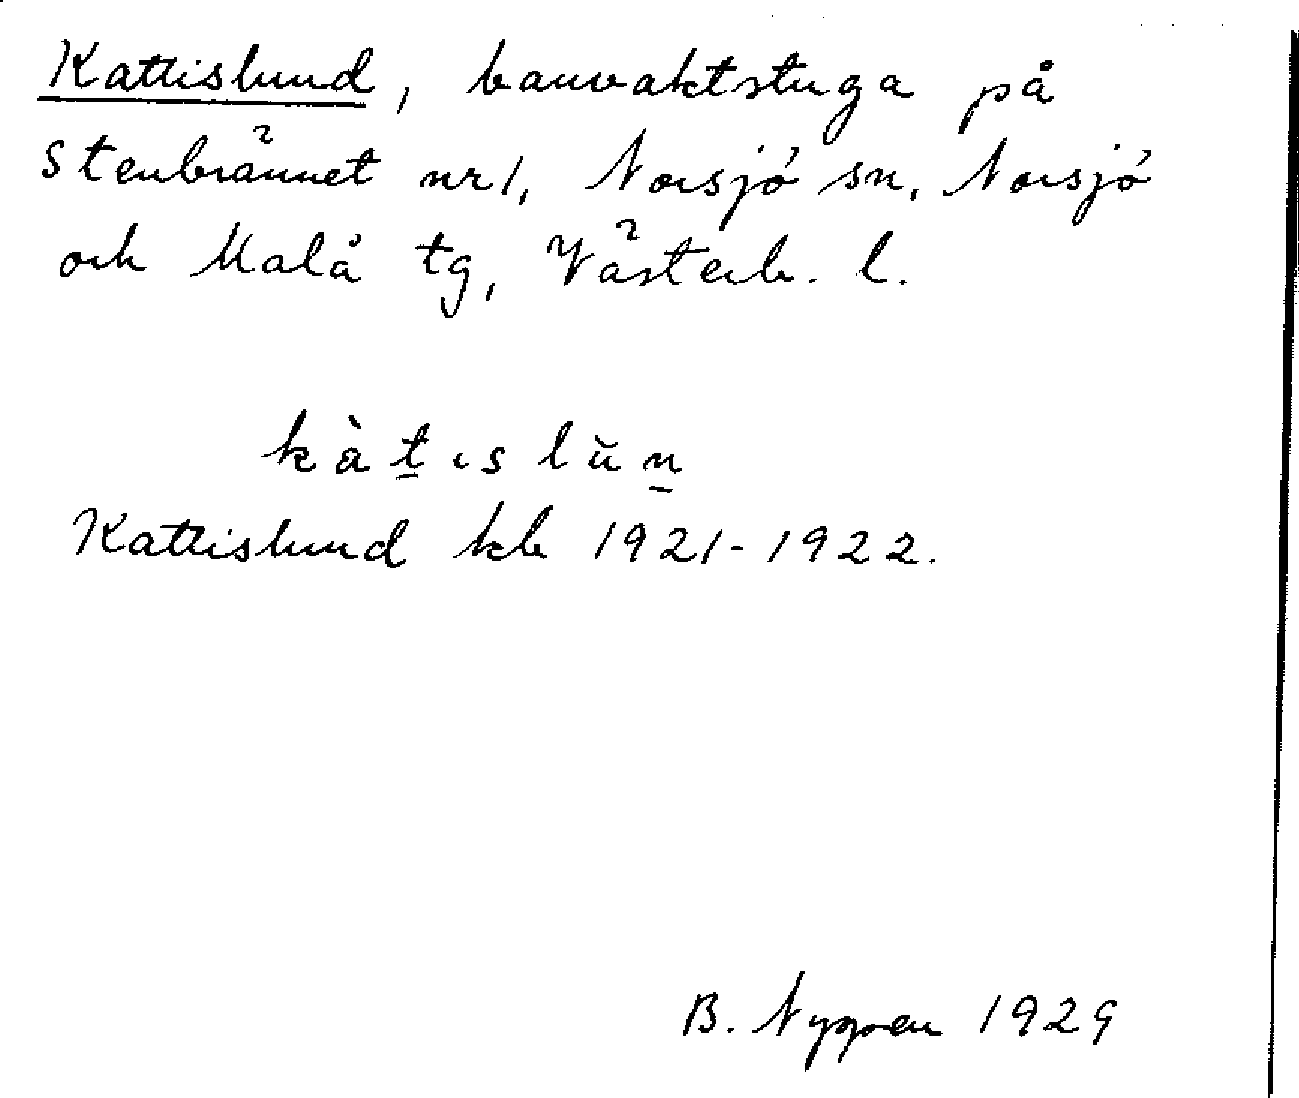 Kattislund, banvaktstuga på
Stenbrännet nr 1, Norsjö sn, Norsjö
och Malå tg, Västerb. l.
kàt̲ıslŭn̲
Kattislund kb 1921-1922.
B. Nyppen 1929